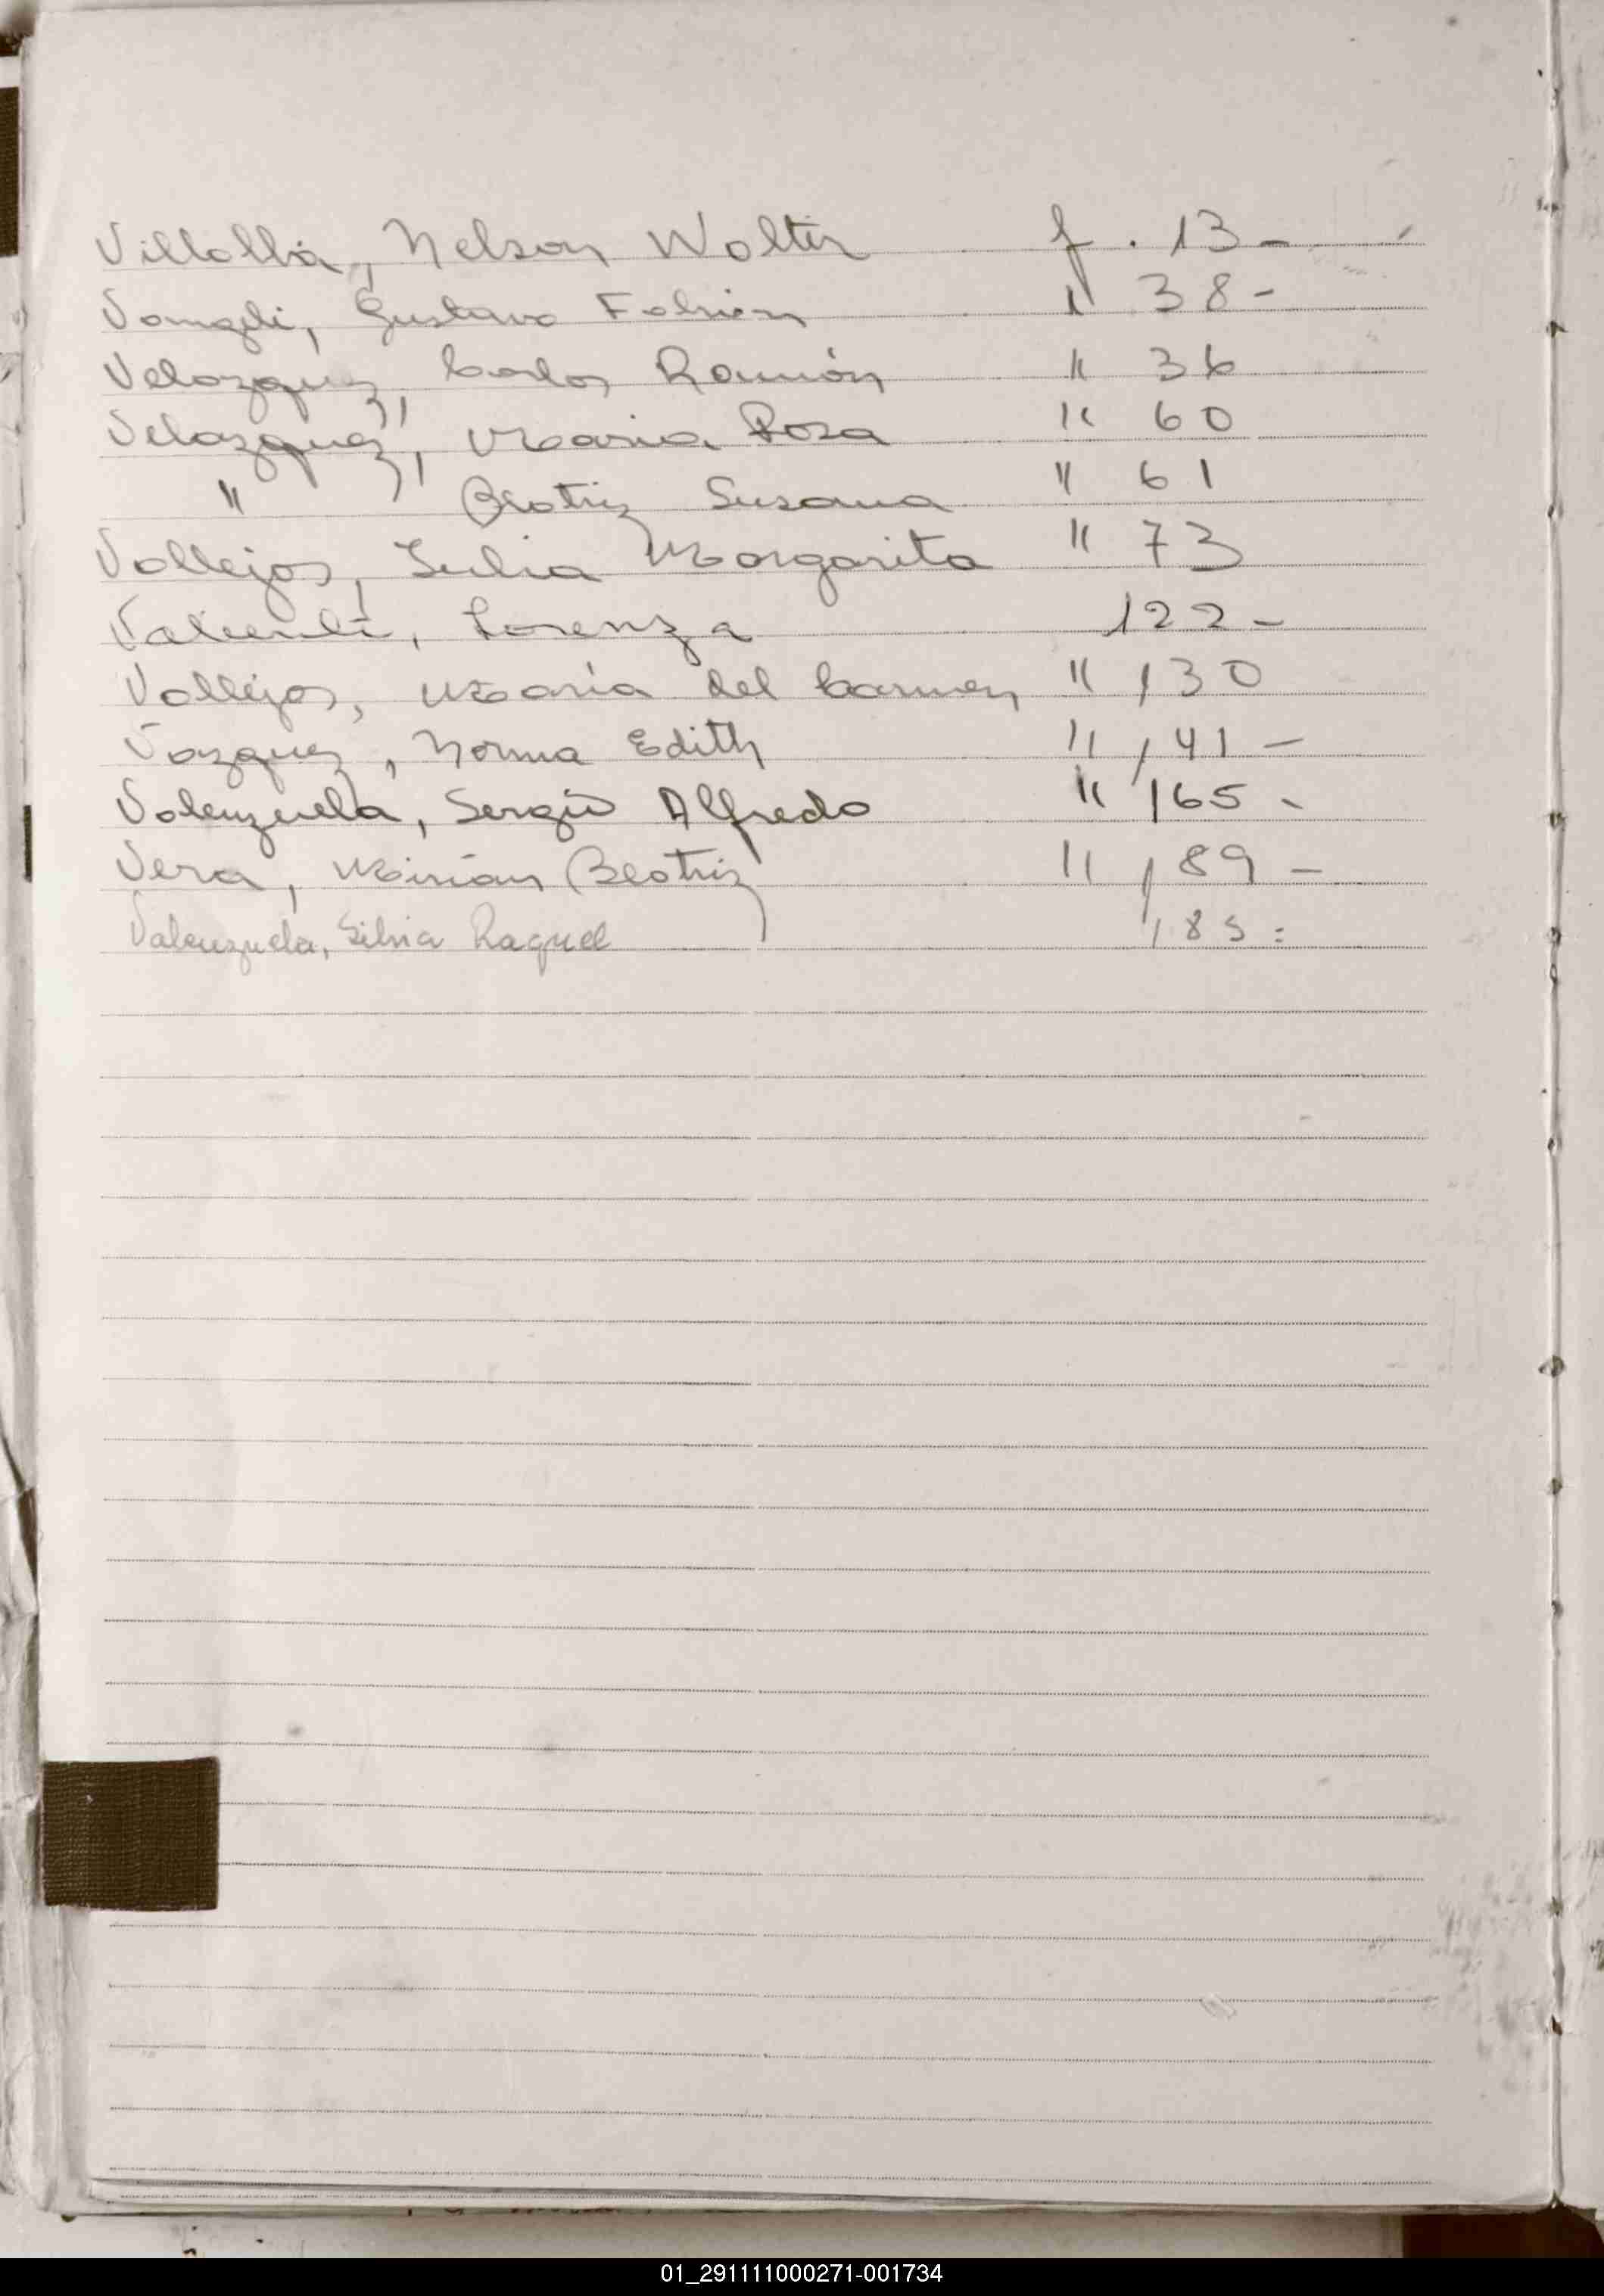 Villalba, Nelson Walter f. 13-
Gustavo Fabian " 38-
Velazquez, Carlos Ramón " 36
Velazquez, Maria Rosa " 60
" Beatriz Susana " 61
Vallejos, Julia Margarita " 73
Valiente, Lorenza 122-
Vallejos, María del Carmen " 130
Vazquez, Norma Edith " 141-
Valenzuela, Sergio Alfredo " 165-
Vera, Mirian Beatriz " 189-
Valenzuela, Silvia Raquel
01_291111000271-001734